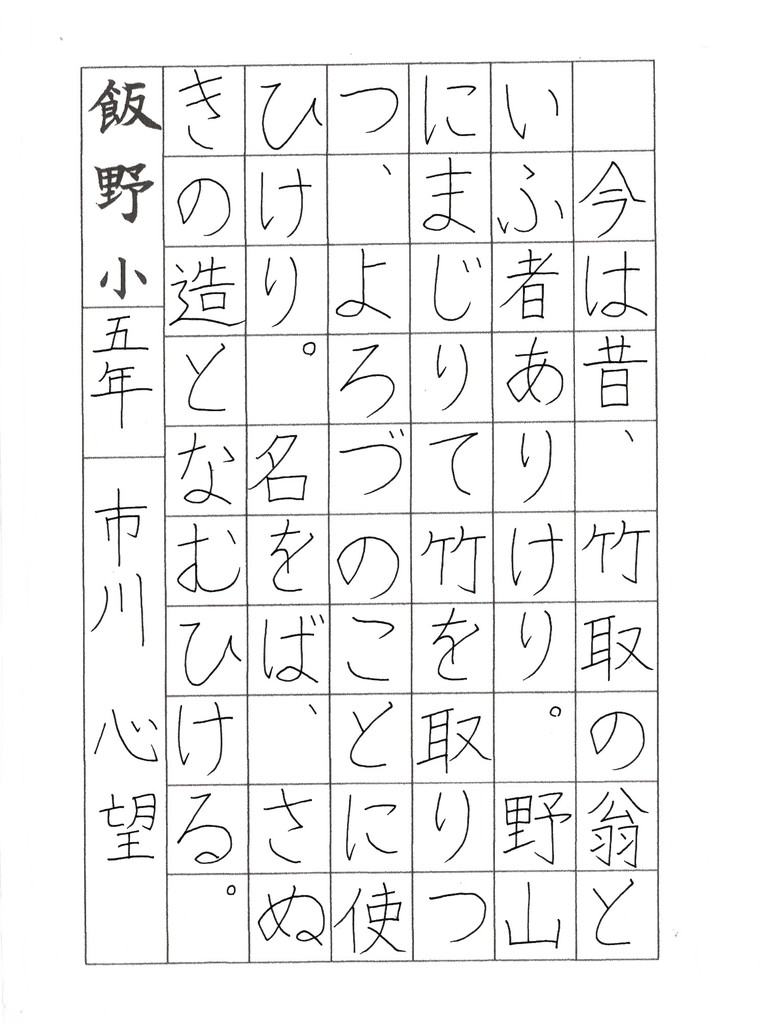 今は昔、竹取の翁と
いふ者ありけり。野山
にまじりて竹を取りつ
つ、よろづのことに使
ひけり。名をば、さぬ
きの造となむひける。
飯野小五年 市川 心望